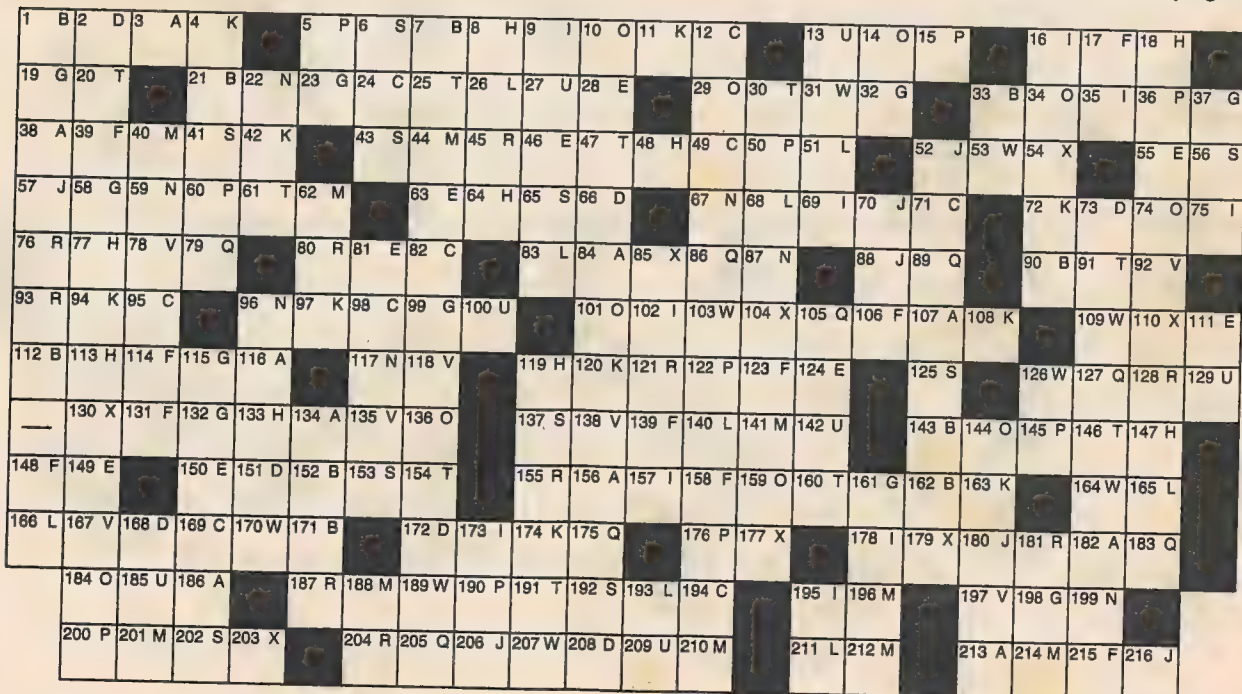 1 B 2 D 3 A 4 K 5 P 6 S 7 B 8 H 9 I 10 O 11 K 12 C 13 U 14 O 15 P 16 I 17 F 18 H
19 G 20 T 21 B 22 N 23 G 24 C 25 T 26 L 27 U 28 E 29 O 30 T 31 W 32 G 33 B 34 O 35 I 36 P 37 G
38 A 39 F 40 M 41 S 42 K 43 S 44 M 45 R 46 E 47 T 48 H 49 C 50 P 51 L 52 J 53 W 54 X 55 E 56 S
57 J 58 G 59 N 60 P 61 T 62 M 63 E 64 H 65 S 66 D 67 N 68 L 69 I 70 J 71 C 72 K 73 D 74 O 75 I
76 R 77 H 78 V 79 Q 80 R 81 E 82 C 83 L 84 A 85 X 86 Q 87 N 88 J 89 Q 90 B 91 T 92 V
93 R 94 K 95 C 96 N 97 K 98 C 99 G 100 U 101 O 102 I 103 W 104 X 105 Q 106 F 107 A 108 K 109 W 110 X 111 E
112 B 113 H 114 F 115 G 116 A 117 N 118 V 119 H 120 K 121 R 122 P 123 F 124 E 125 S 126 W 127 Q 128 R 129 U
— 130 X 131 F 132 G 133 H 134 A 135 V 136 O 137 S 138 V 139 F 140 L 141 M 142 U 143 B 144 O 145 P 146 T 147 H
148 F 149 E 150 E 151 D 152 B 153 S 154 T 155 R 156 A 157 I 158 F 159 O 160 T 161 G 162 B 163 K 164 W 165 L
166 L 167 V 168 D 169 C 170 W 171 B 172 D 173 I 174 K 175 Q 176 P 177 X 178 I 179 X 180 J 181 R 182 A 183 Q
184 O 185 U 186 A 187 R 188 M 189 W 190 P 191 T 192 S 193 L 194 C 195 I 196 M 197 V 198 G 199 N
200 P 201 M 202 S 203 X 204 R 205 Q 206 J 207 W 208 D 209 U 210 M 211 L 212 M 213 A 214 M 215 F 216 J